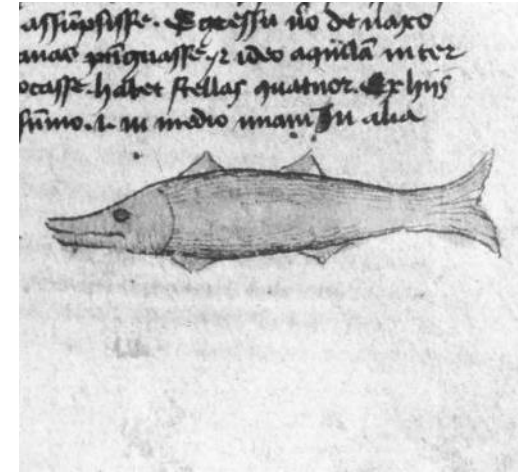 assūpsisse. Egressū ūo de naxo
auias pūguasse ⁊ ideo aquilā inter
ocasse. habet stellas quatuor. Ex hijs
sūmo. i. in medio unam In alia